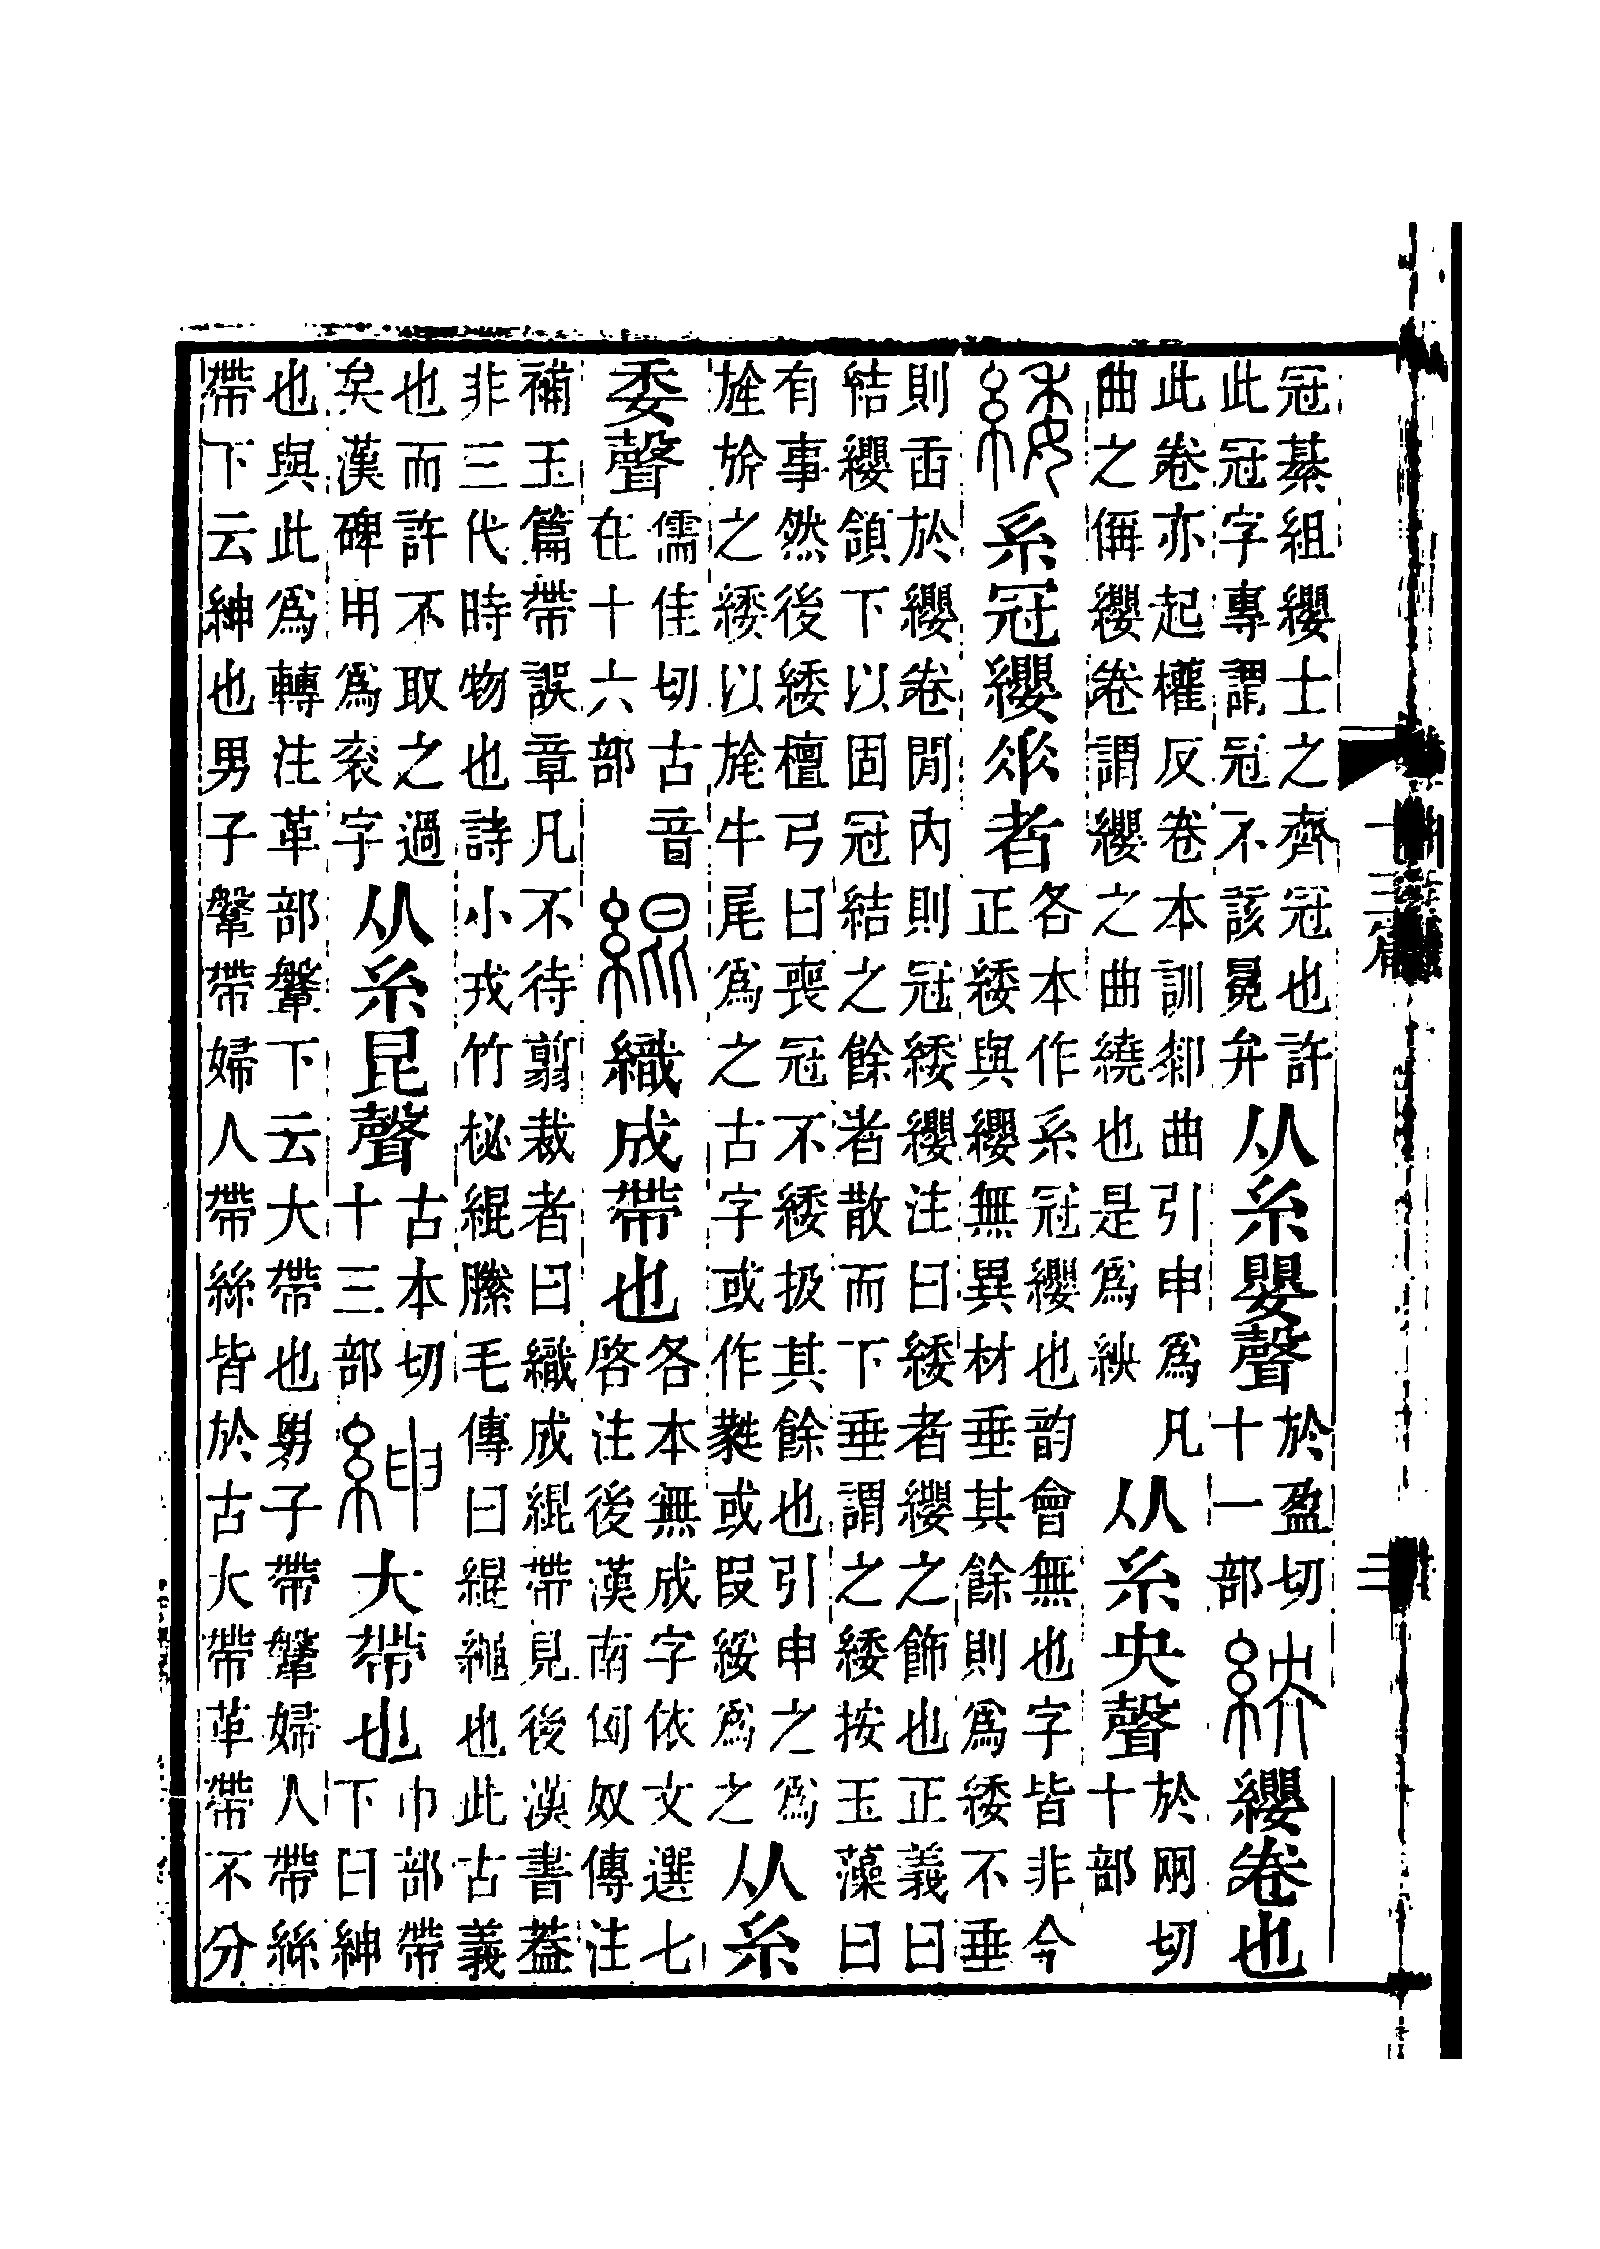 冠綦組纓士之齊冠也許
此冠字專謂冠不該冕弁
从糸嬰聲
於盈切
十一部
紻
纓卷也
此卷亦起權反卷本訓厀曲引申爲凡
曲之偁纓卷謂纓之曲繞也是爲紻
从糸央聲
於网切
十部
緌
系冠纓𠂹者
各本作系冠纓也韵會無也字皆非今
正緌與纓無異材垂其餘則爲緌不垂
則臿於纓卷閒內則冠緌纓注曰緌者纓之飾也正義曰
結纓頷下以固冠結之餘者散而下垂謂之緌按玉藻曰
有事然後緌檀弓曰喪冠不緌扱其餘也引申之爲
旌旂之緌以旄牛尾爲之古字或作㽔或叚綏爲之
从糸
委聲
儒佳切古音
在十六部
緄
織成帶也
各本無成字依文選七
啓注後漢南匈奴傳注
補玉篇帶誤章凡不待翦裁者曰織成緄帶見後漢書葢
非三代時物也詩小戎竹柲緄縢毛傳曰緄繩也此古義
也而許不取之過
矣漢碑用爲衮字
从糸昆聲
古本切
十三部
紳
大帶也
巾部帶
下曰紳
也與此爲轉注革部鞶下云大帶也男子帶鞶婦人帶絲
帶下云紳也男子鞶帶婦人帶絲皆於古大帶革帶不分